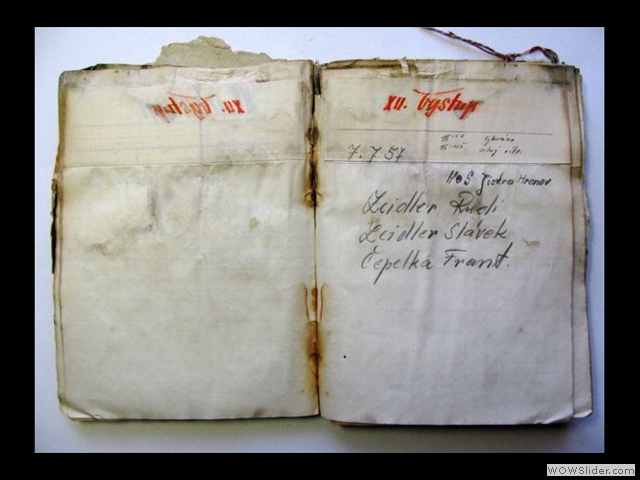 XII. Výstup
7.7.57
HOS Jiskra Hronov
Zeidler Rudi
Zeidler Slávek
Čepelka Frant.
WOWSlider.com